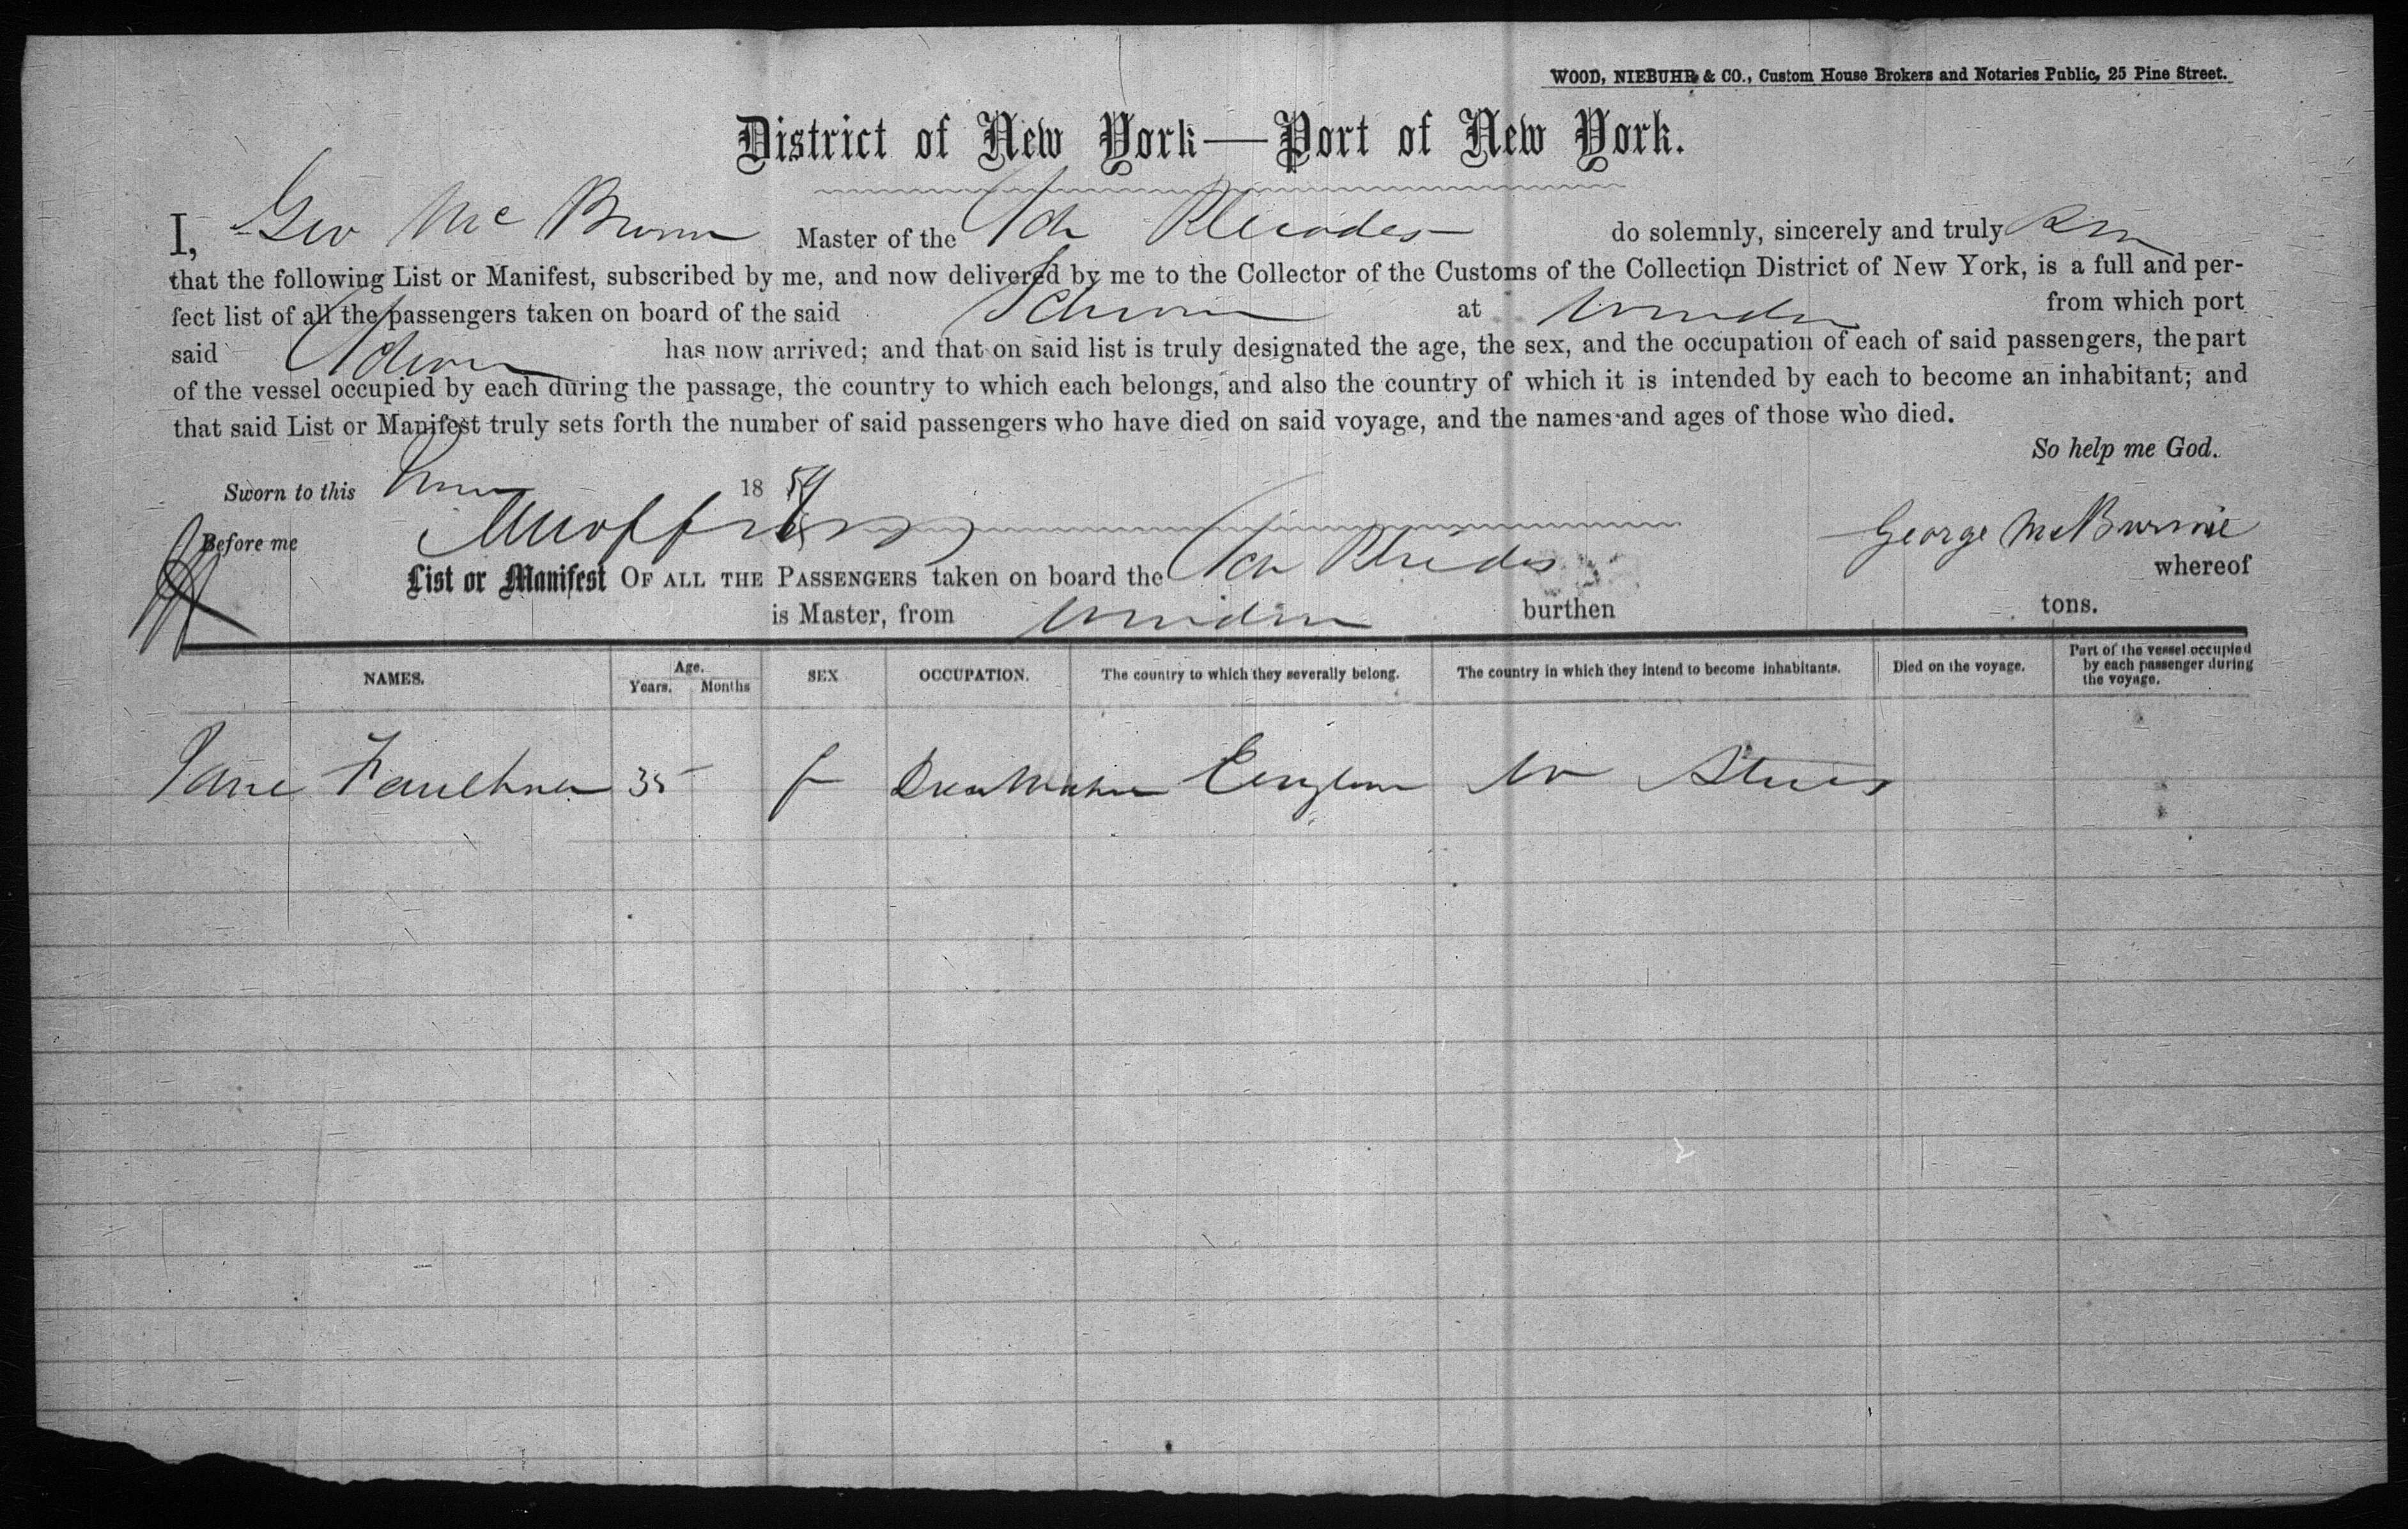 WOOD, NIEBUHR & CO., Custom House Brokers and Notaries Public, 25 Pine Street.
District of New York—Port of New York.
I, Geo Mc Burnie Master of the Sch Rhodes do solemnly, sincerely and truly
that the following List or Manifest, subscribed by me, and now delivered by me to the Collector of the Customs of the Collection District of New York, is a full and per-
fect list of all the passengers taken on board of the said Schooner at from which port
said Schooner has now arrived; and that on said list is truly designated the age, the sex, and the occupation of each of said passengers, the part
of the vessel occupied by each during the passage, the country to which each belongs, and also the country of which it is intended by each to become an inhabitant; and
that said List or Manifest truly sets forth the number of said passengers who have died on said voyage, and the names and ages of those who died.
So help me God.
Sworn to this 18 59
Before me George McBurnie
List or Manifest OF ALL THE PASSENGERS taken on board the Sch Rhodes whereof
is Master, from burthen tons.
NAMES. Age. Years. Months SEX OCCUPATION. The country to which they severally belong. The country in which they intend to become inhabitants. Died on the voyage. Part of the vessel occupied by each passenger during the voyage.
Jane Faulkner 35 f DressMaker England Un States